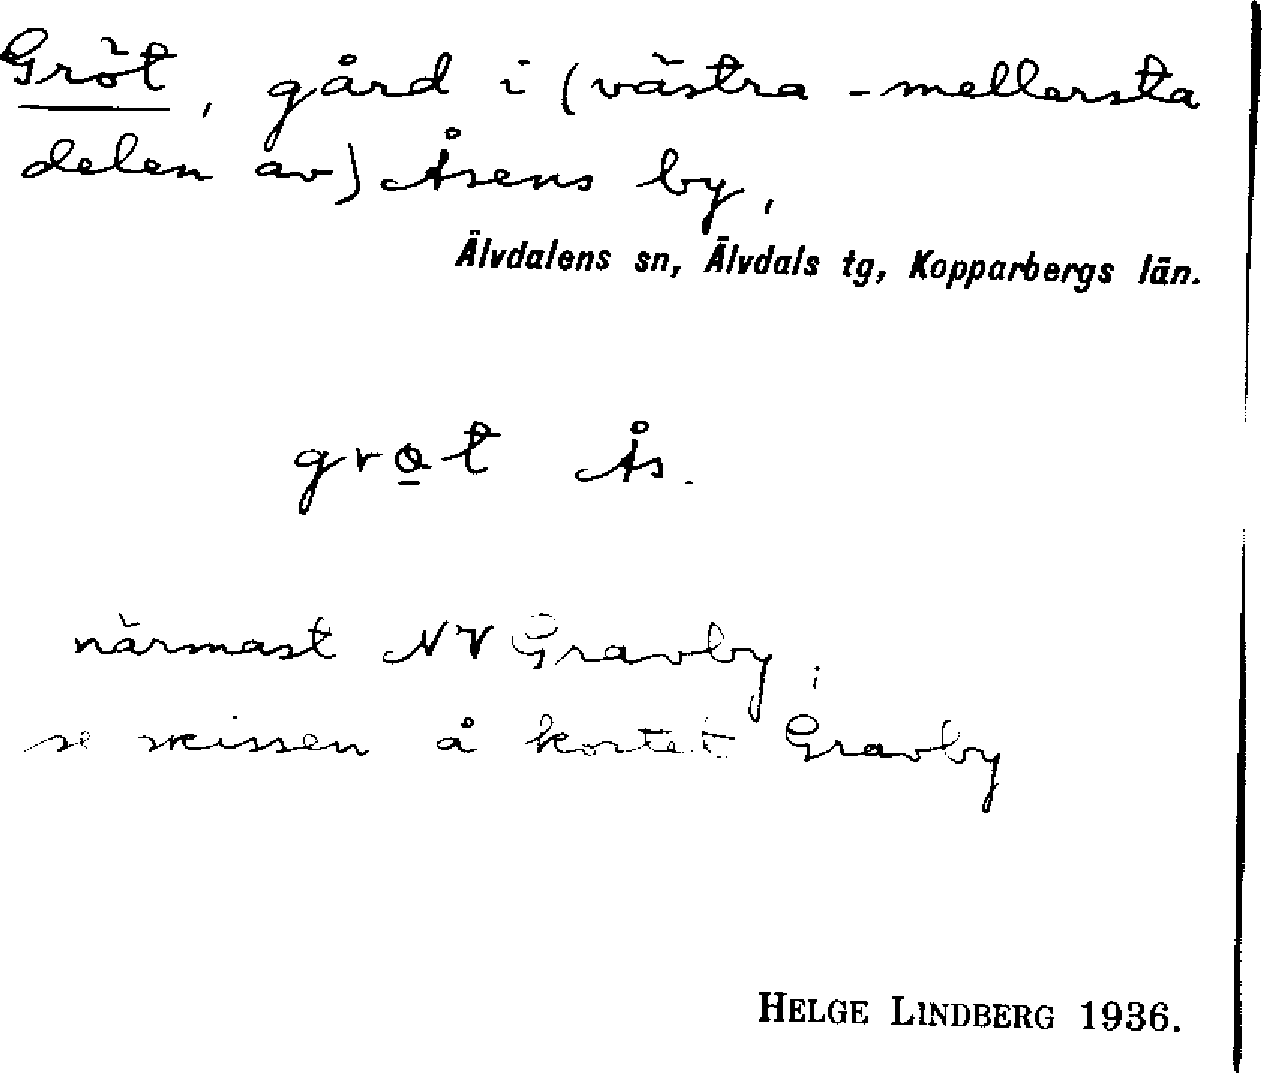 Gröt, gård i (västra - mellersta
delen av) Åsens by,
Älvdalens sn, Älvdals tg, Kopparbergs län.
Ås.
närmast NV Gravby;
se skissen å kortet Gravby
HELGE LINDBERG 1936.